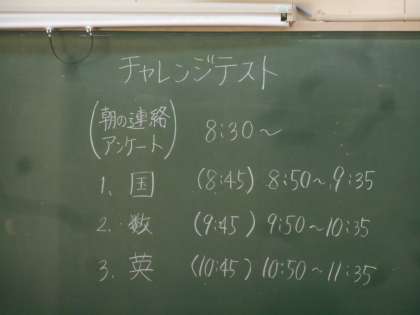 チャレンジテスト
(朝の連絡
アンケート) 8:30～
1. 国 (8:45) 8:50～9:35
2. 数 (9:45) 9:50～10:35
3. 英 (10:45) 10:50～11:35